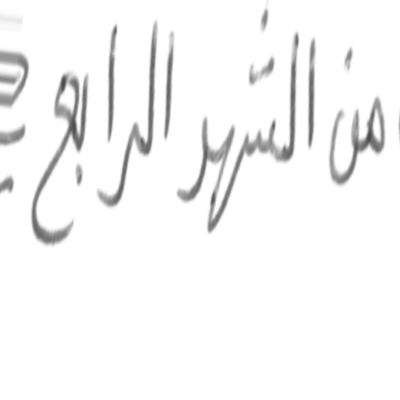 من الشهر الرابع